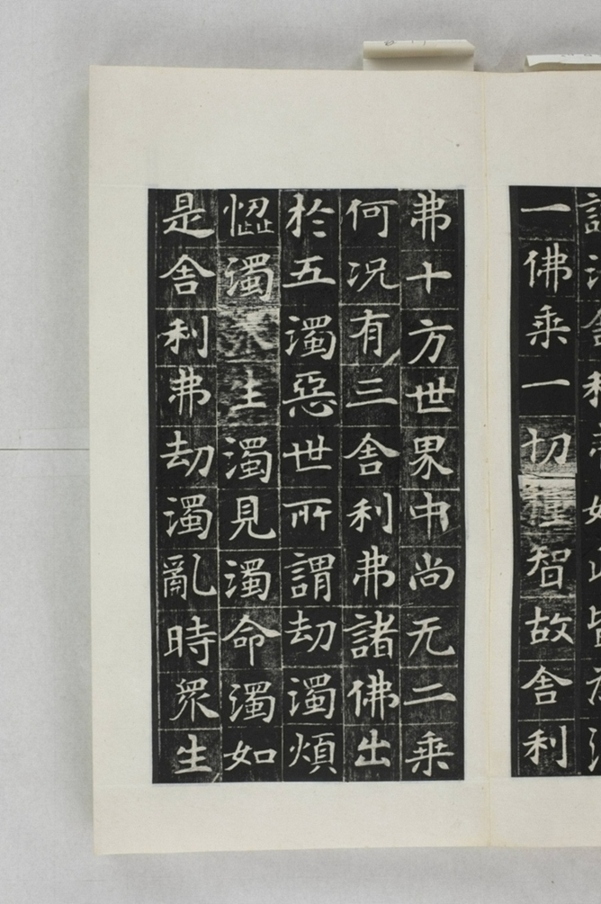 一佛乘一切種智故舍利
弗十方世界中尚无二乘
何况有三舍利弗諸佛出
於五濁惡世所謂劫濁煩
惱濁眾生濁見濁命濁如
是舍利弗劫濁亂時眾生